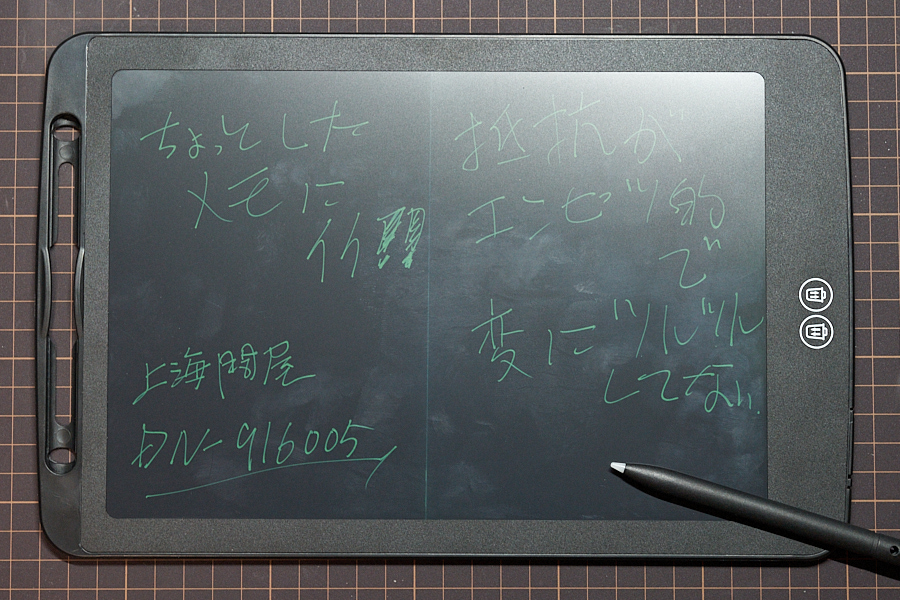 ちょっとした
メモに
上海問屋
DN-916005
抵抗が
エンピツ的
で
変にツルツル
してない.